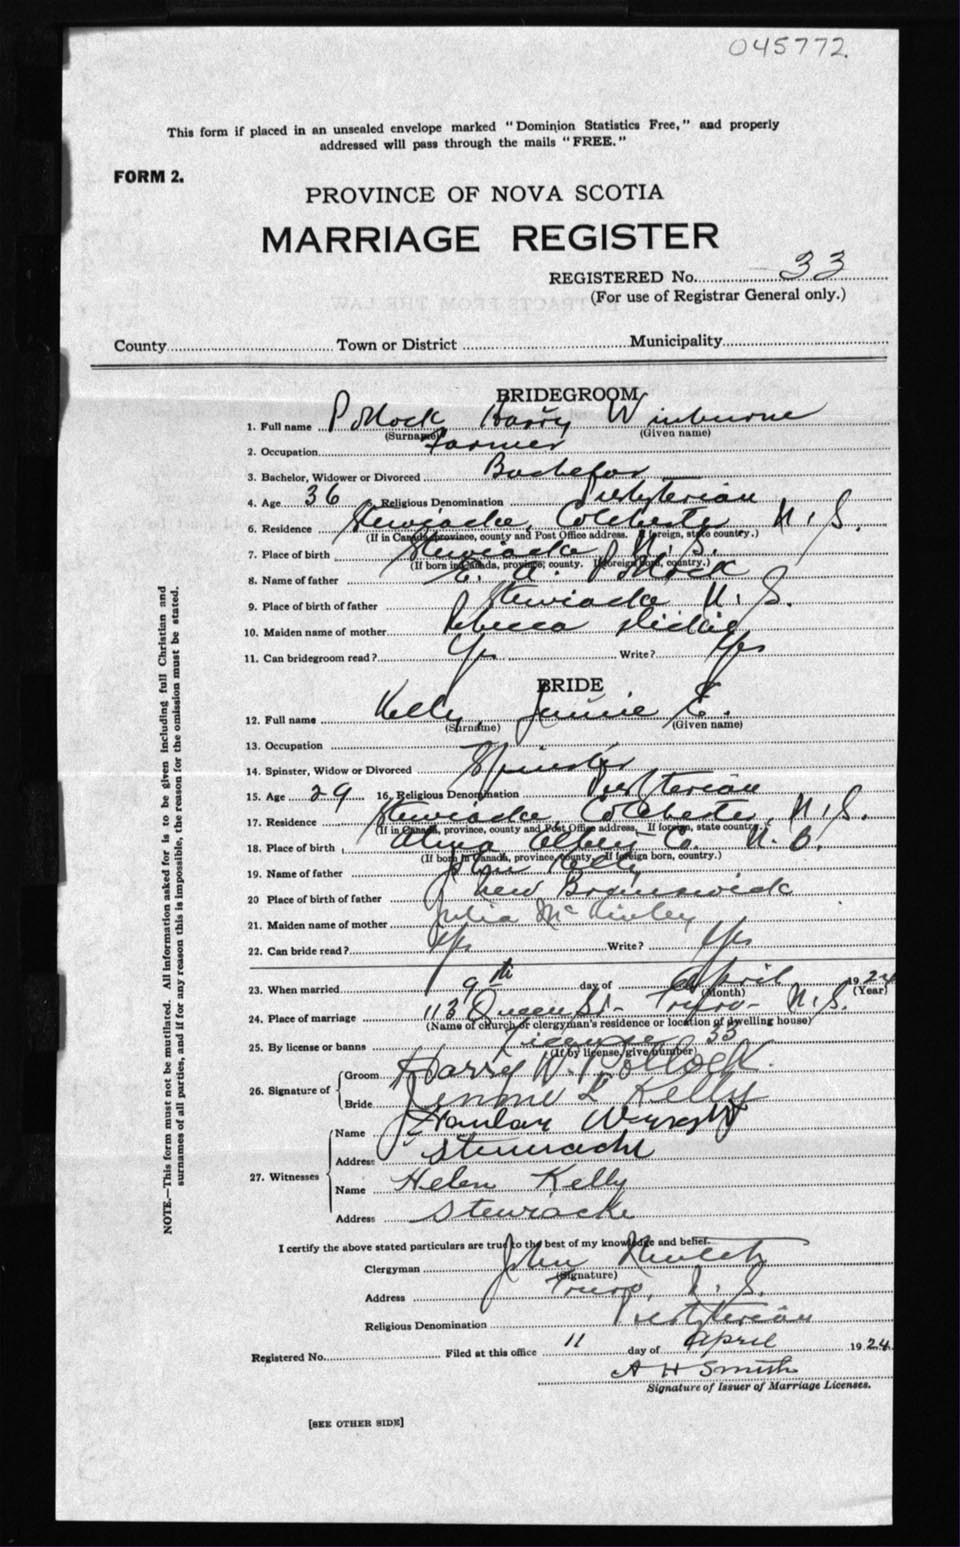 045772.
This form if placed in an unsealed envelope marked "Dominion Statistics Free," and properly
addressed will pass through the mails "FREE."
FORM 2.
PROVINCE OF NOVA SCOTIA
MARRIAGE REGISTER
REGISTERED No. 33
(For use of Registrar General only.)
County Town or District Municipality
BRIDEGROOM
1. Full name Pollock, Harry Winburne
(Surname) (Given name)
2. Occupation Farmer
3. Bachelor, Widower or Divorced Bachelor
4. Age 36 5. Religious Denomination Presbyterian
6. Residence Stewiacke, Colchester N.S.
(If in Canada, province, county and Post Office address. If foreign, state country.)
7. Place of birth Stewiacke N.S.
(If born in Canada, province, county. If foreign born, country.)
8. Name of father E. A. Pollock
9. Place of birth of father Stewiacke N.S.
10. Maiden name of mother Rebecca Dickie
11. Can bridegroom read? Yes Write? Yes
BRIDE
12. Full name Kelly, Jennie E.
(Surname) (Given name)
13. Occupation
14. Spinster, Widow or Divorced Spinster
15. Age 29 16. Religious Denomination Presbyterian
17. Residence Stewiacke, Colchester, N.S.
(If in Canada, province, county and Post Office address. If foreign, state country.)
18. Place of birth Alma Albert Co. N.B.
(If born in Canada, province, county. If foreign born, country.)
19. Name of father John Kelly
20 Place of birth of father New Brunswick
21. Maiden name of mother Julia McKinley
22. Can bride read? Yes Write? Yes
23. When married 9th day of April 1924
(Month) (Year)
24. Place of marriage 113 Queen St- Truro- N.S.
(Name of church or clergyman's residence or location of dwelling house)
25. By license or banns License 33
(If by license, give number)
26. Signature of Groom Harry W. Pollock.
Bride Jennie E Kelly
27. Witnesses Name Stanley
Address Stewiacke
Name Helen Kelly
Address Stewiacke
I certify the above stated particulars are true to the best of my knowledge and belief.
Clergyman John
(Signature)
Address Truro, N.S.
Religious Denomination Presbyterian
Registered No. Filed at this office 11 day of April 1924.
A H Smith
Signature of Issuer of Marriage Licenses.
[SEE OTHER SIDE]
NOTE.—This form must not be mutilated. All information asked for is to be given including full Christian and
surnames of all parties, and if for any reason this is impossible, the reason for the omission must be stated.